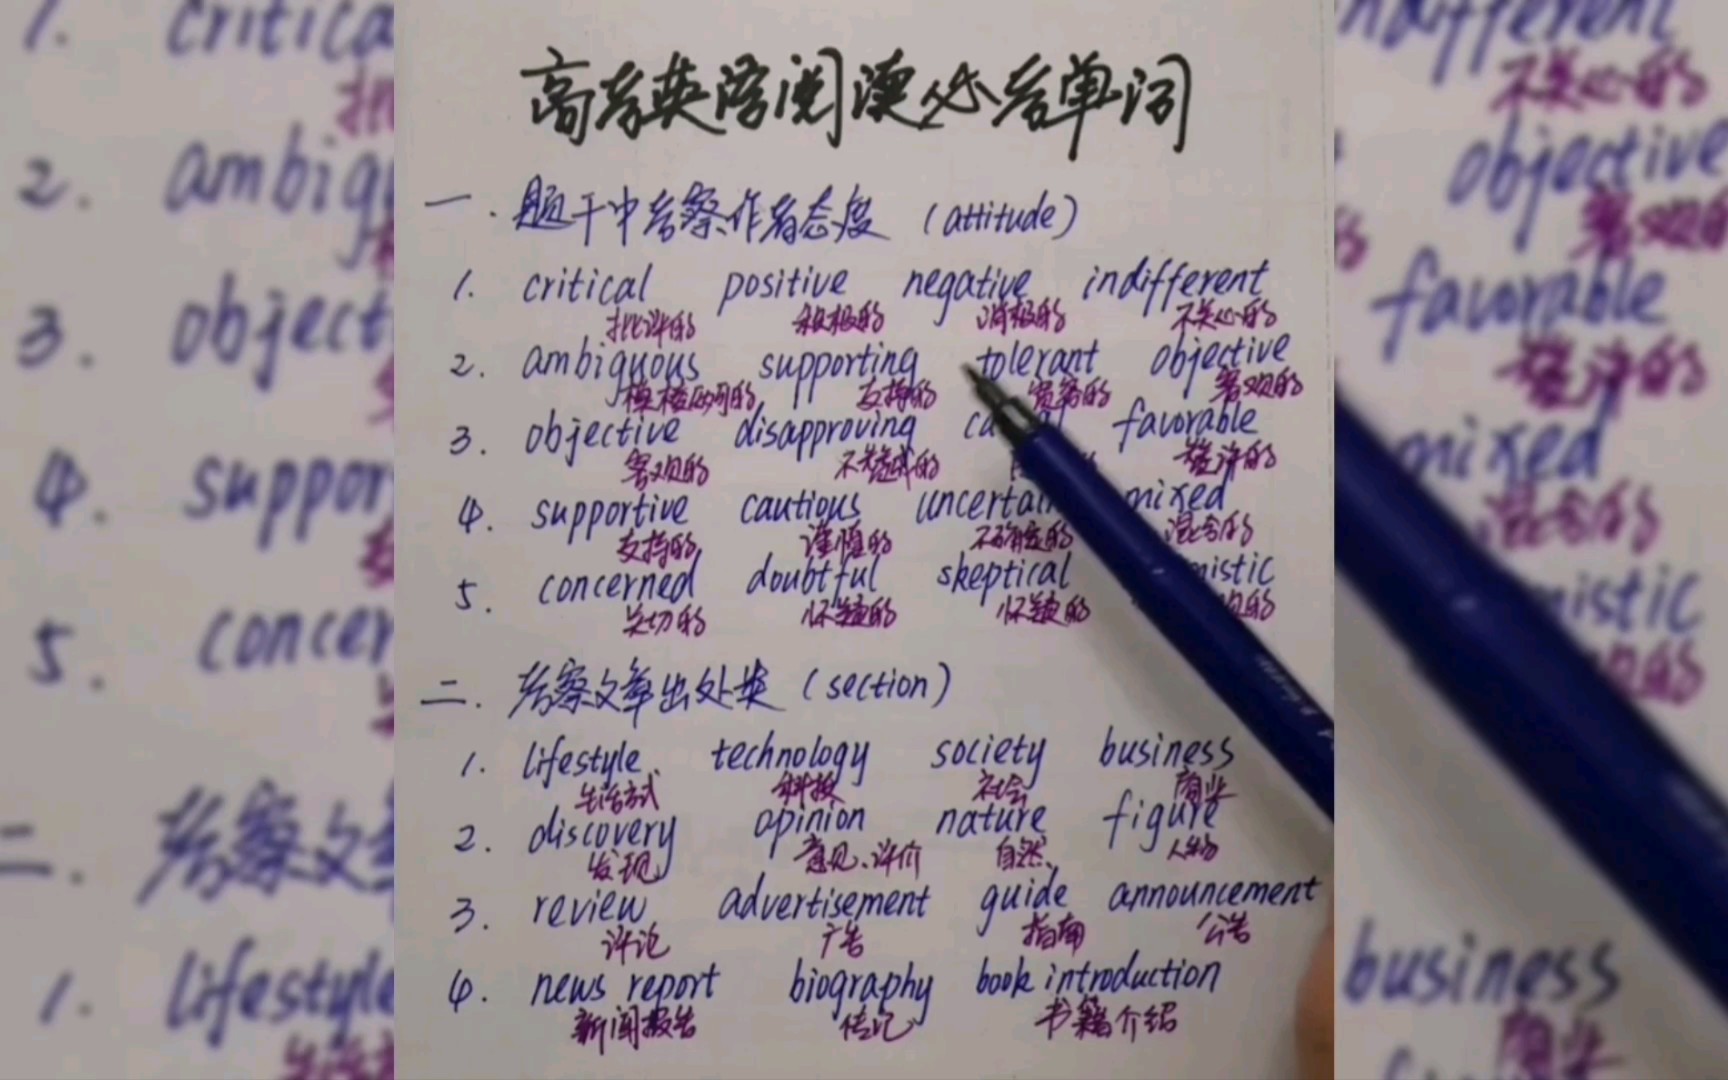 高考英语阅读必考单词
一. 题干中考察作者态度 (attitude)
1. critical positive negative indifferent
批评的 积极的 消极的 不关心的
2. ambiguous supporting tolerant objective
模棱两可的 支持的 宽容的 客观的
3. objective disapproving favorable
客观的 不赞成的 赞许的
4. supportive cautious uncertain mixed
支持的 谨慎的 不确定的 混合的
5. concerned doubtful skeptical mistic
关切的 怀疑的 怀疑的 观的
二. 考察文章出处类 (section)
1. lifestyle technology society business
生活方式 科技 社会 商业
2. discovery opinion nature figure
发现 意见、评价 自然 人物
3. review advertisement guide announcement
评论 广告 指南 公告
4. news report biography book introduction
新闻报告 传记 书籍介绍